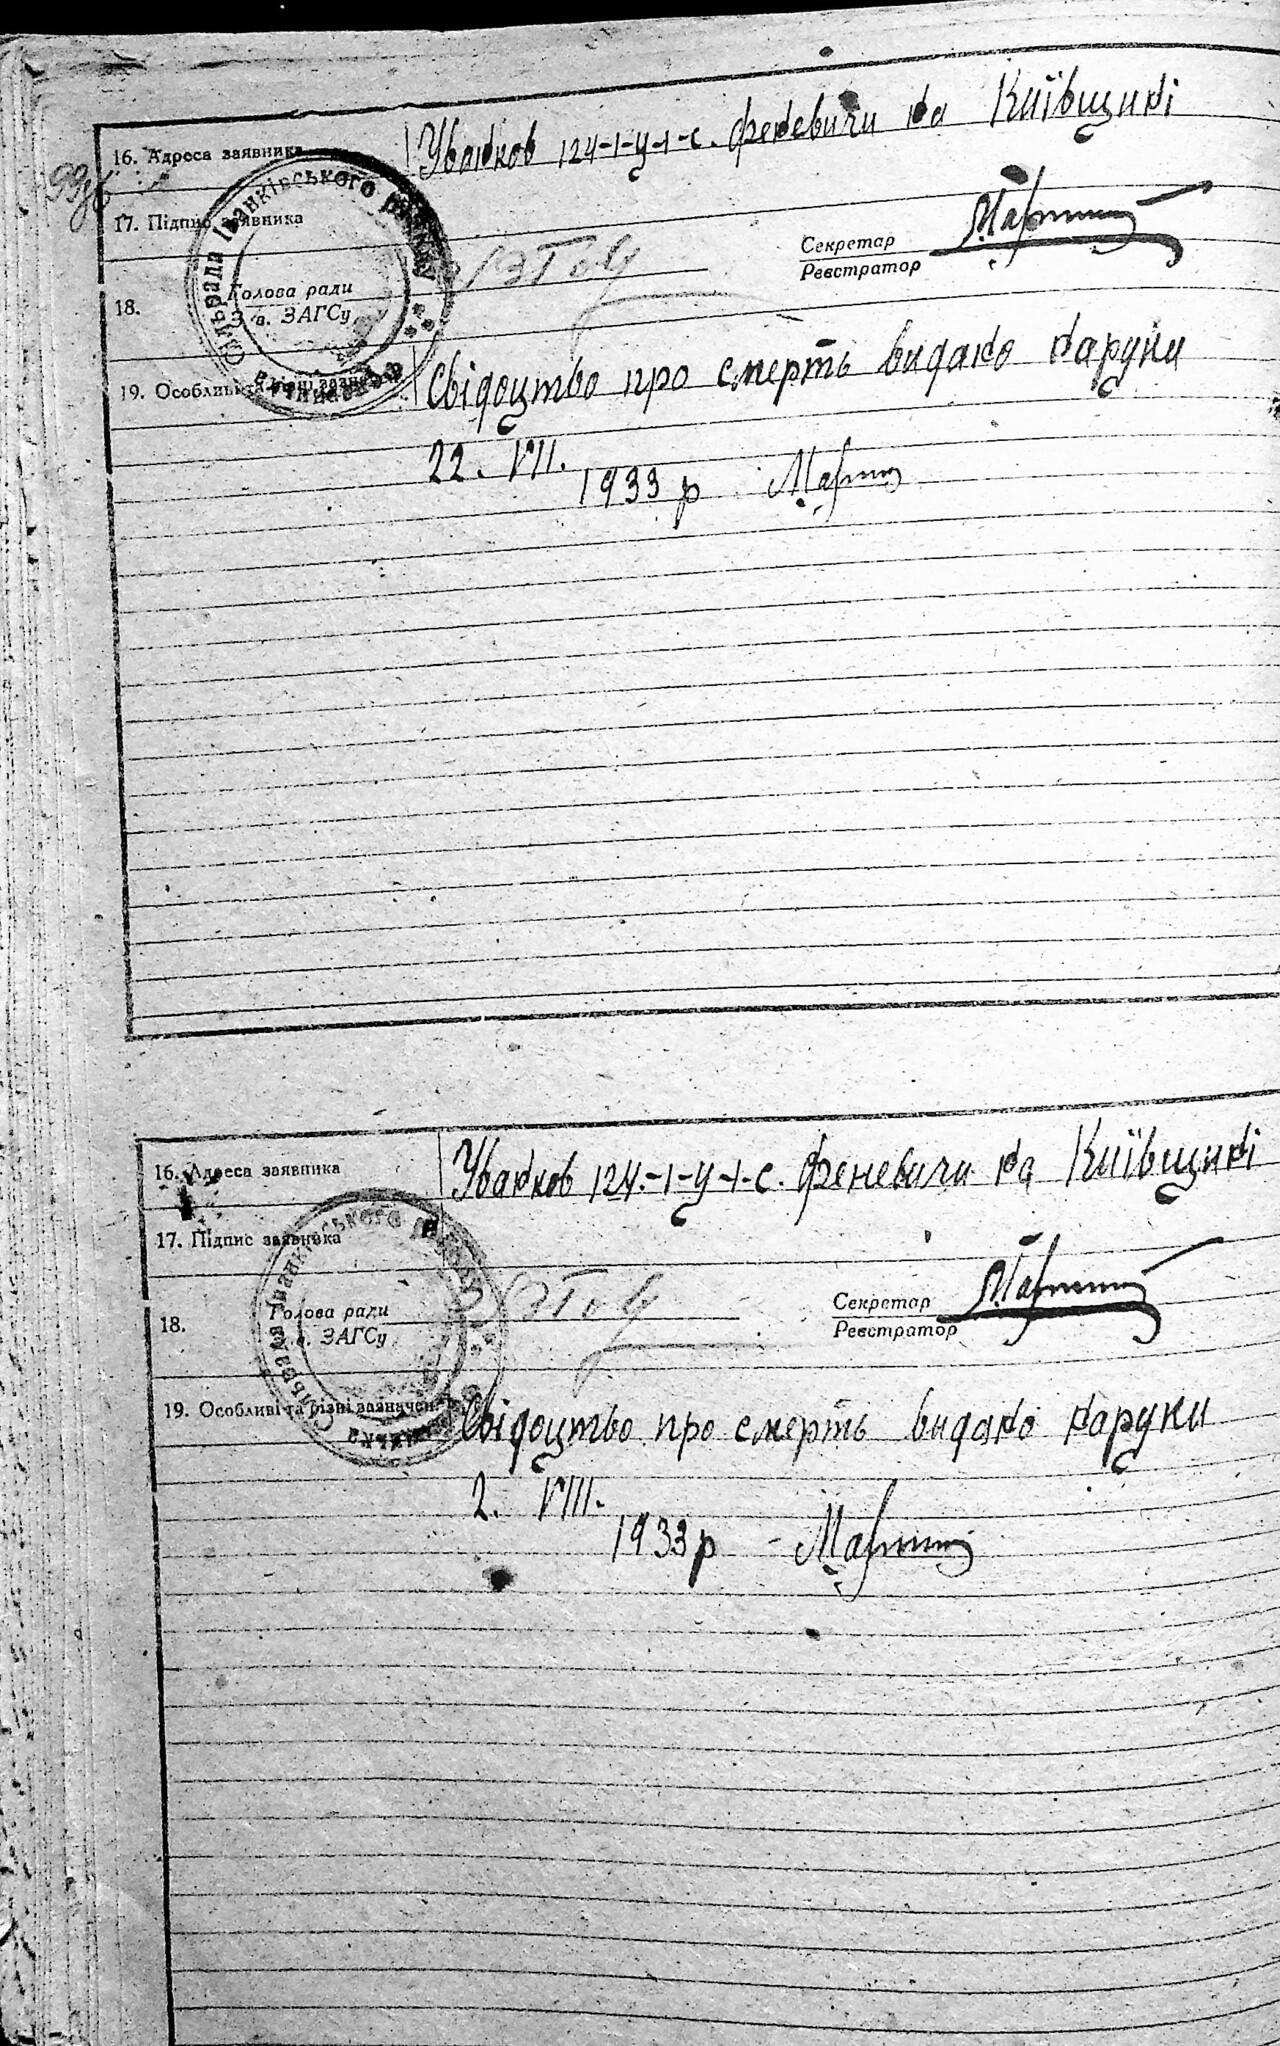 16. Адреса заявника Уванков 124-1-у-1-с. Феневичи на Київщині
17. Підпис заявника
Секретар
Реєстратор
18. Голова ради
Зав. ЗАГСу
Сільрада Іванківського району
19. Особливі та різні зазначення Свідоцтво про смерть видано на руки
22. VII.
1933 р
16. Адреса заявника Уванков 124.-1-у-1-с. Феневичи на Київщині
17. Підпис заявника
Секретар
Реєстратор
18. Голова ради
Зав. ЗАГСу
Сільрада Іванківського району
19. Особливі та різні зазначен. Свідоцтво про смерть видано на руки
2. VIII.
1933 р